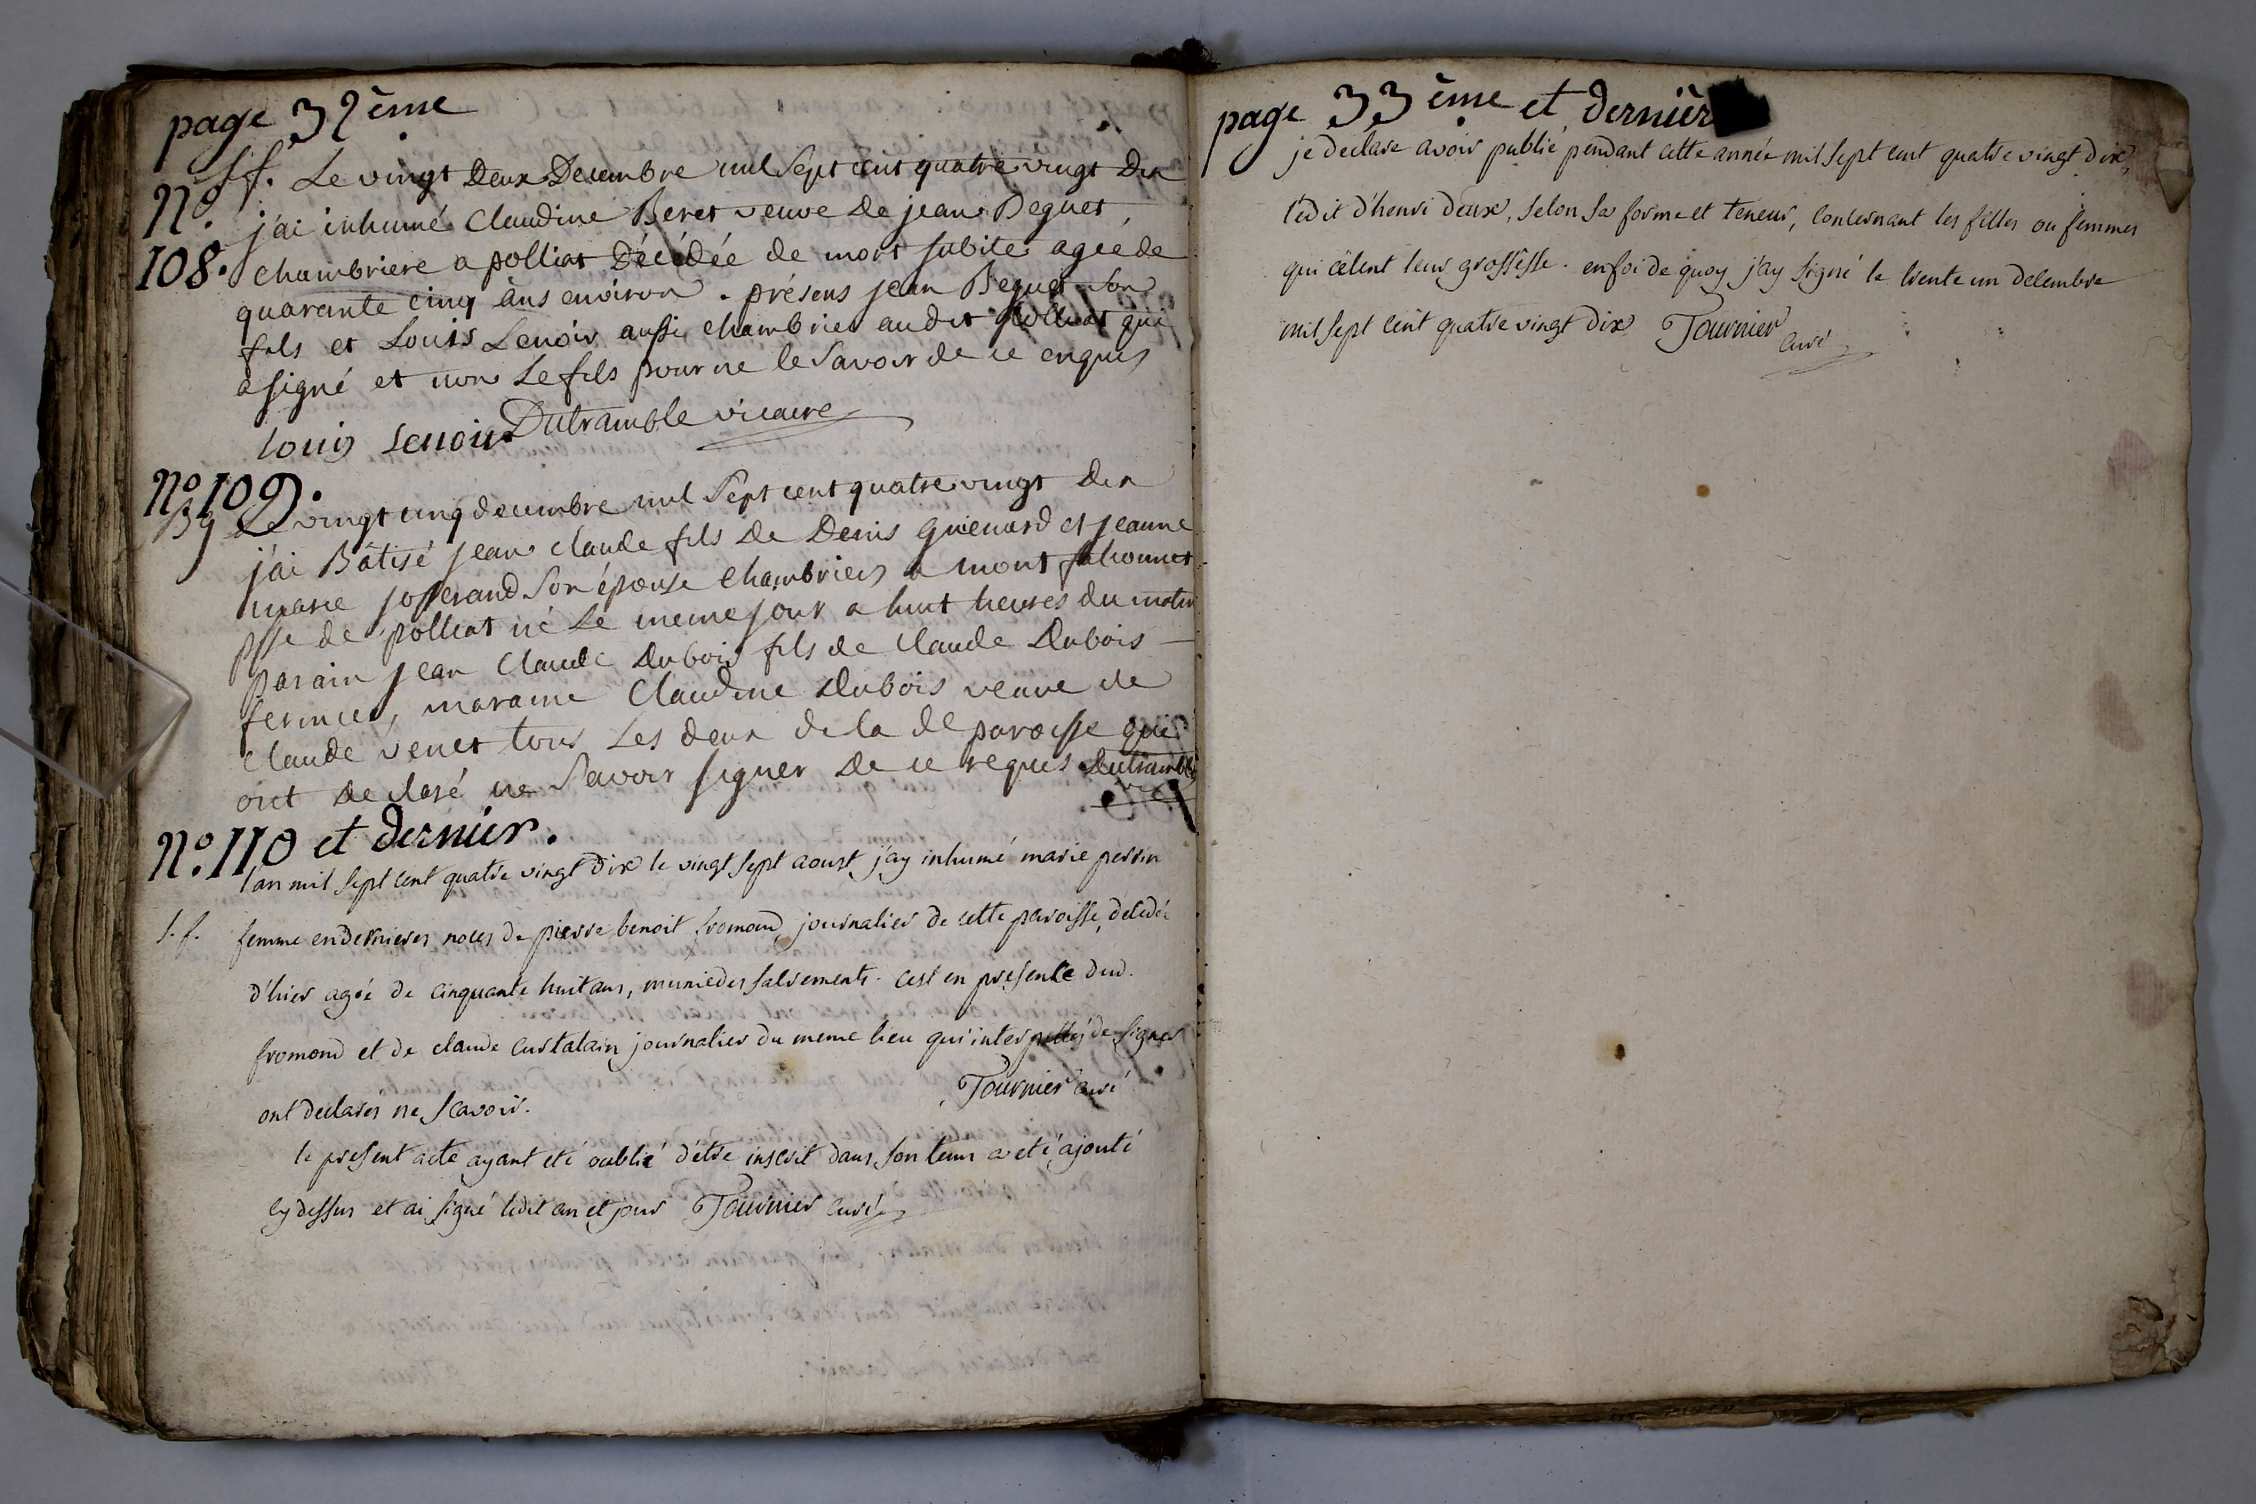 page 32ème
S.f. Le vingt Deux Decembre mil Sept cent quatre vingt Dix
N.o j'ai inhumé Claudine Beret veuve De jean Beguet,
108. chambriere a polliat Décédée de mort subite ageé de
quarante cinq ans environ. présens jean Beguet son
fils et Louis Lenoir aussi chambrier audit polliat qui
a signé et non Le fils pour ne le savoir de ce enquis
Louis Lenoir Dutramble vicaire
N.o 109.
By Le vingt cinq decembre mil Sept cent quatre vingt Dix
j'ai Bâtisé jean claude fils De Denis Guienard et jeanne
marie josserand Son épouse chambriers a mont falconnet
psse de polliat né Le meme jour a huit heures du matin
parain jean Claude Dubois fils de Claude Dubois
fermier, maraine Claudine Dubois veuve de
Claude venet tous Les deux de la de paroisse qui
ont declaré ne Savoir signer De ce requis Dutramble
vic
N.o 110 et dernier.
l'an mil sept cent quatre vingt dix le vingt sept aoust j'ay inhumé marie perrin
S.f. femme en dernieres noces de pierre benoit fromond journalier de cette paroisse, décédée
d'hier ageé de cinquante huit ans, munie des sacrements. c'est en presence dud.
fromond et de claude curtalain journalier du meme lieu qui interpellés de signer
ont declarés ne scavoir. Tournier curé
le present acte ayant eté oublié d'être inscrit dans son tems a eté ajouté
cy dessus et ai signé ledit an et jour Tournier curé
page 33ème et dernièr
je declare avoir publié pendant cette année mil sept cent quatre vingt dix,
l'édit d'henri deux, selon sa forme et teneur, concernant les filles ou femmes
qui cèlent leur grossesse. en foi de quoy j'ay signé le trente un decembre
mil sept cent quatre vingt dix Tournier curé